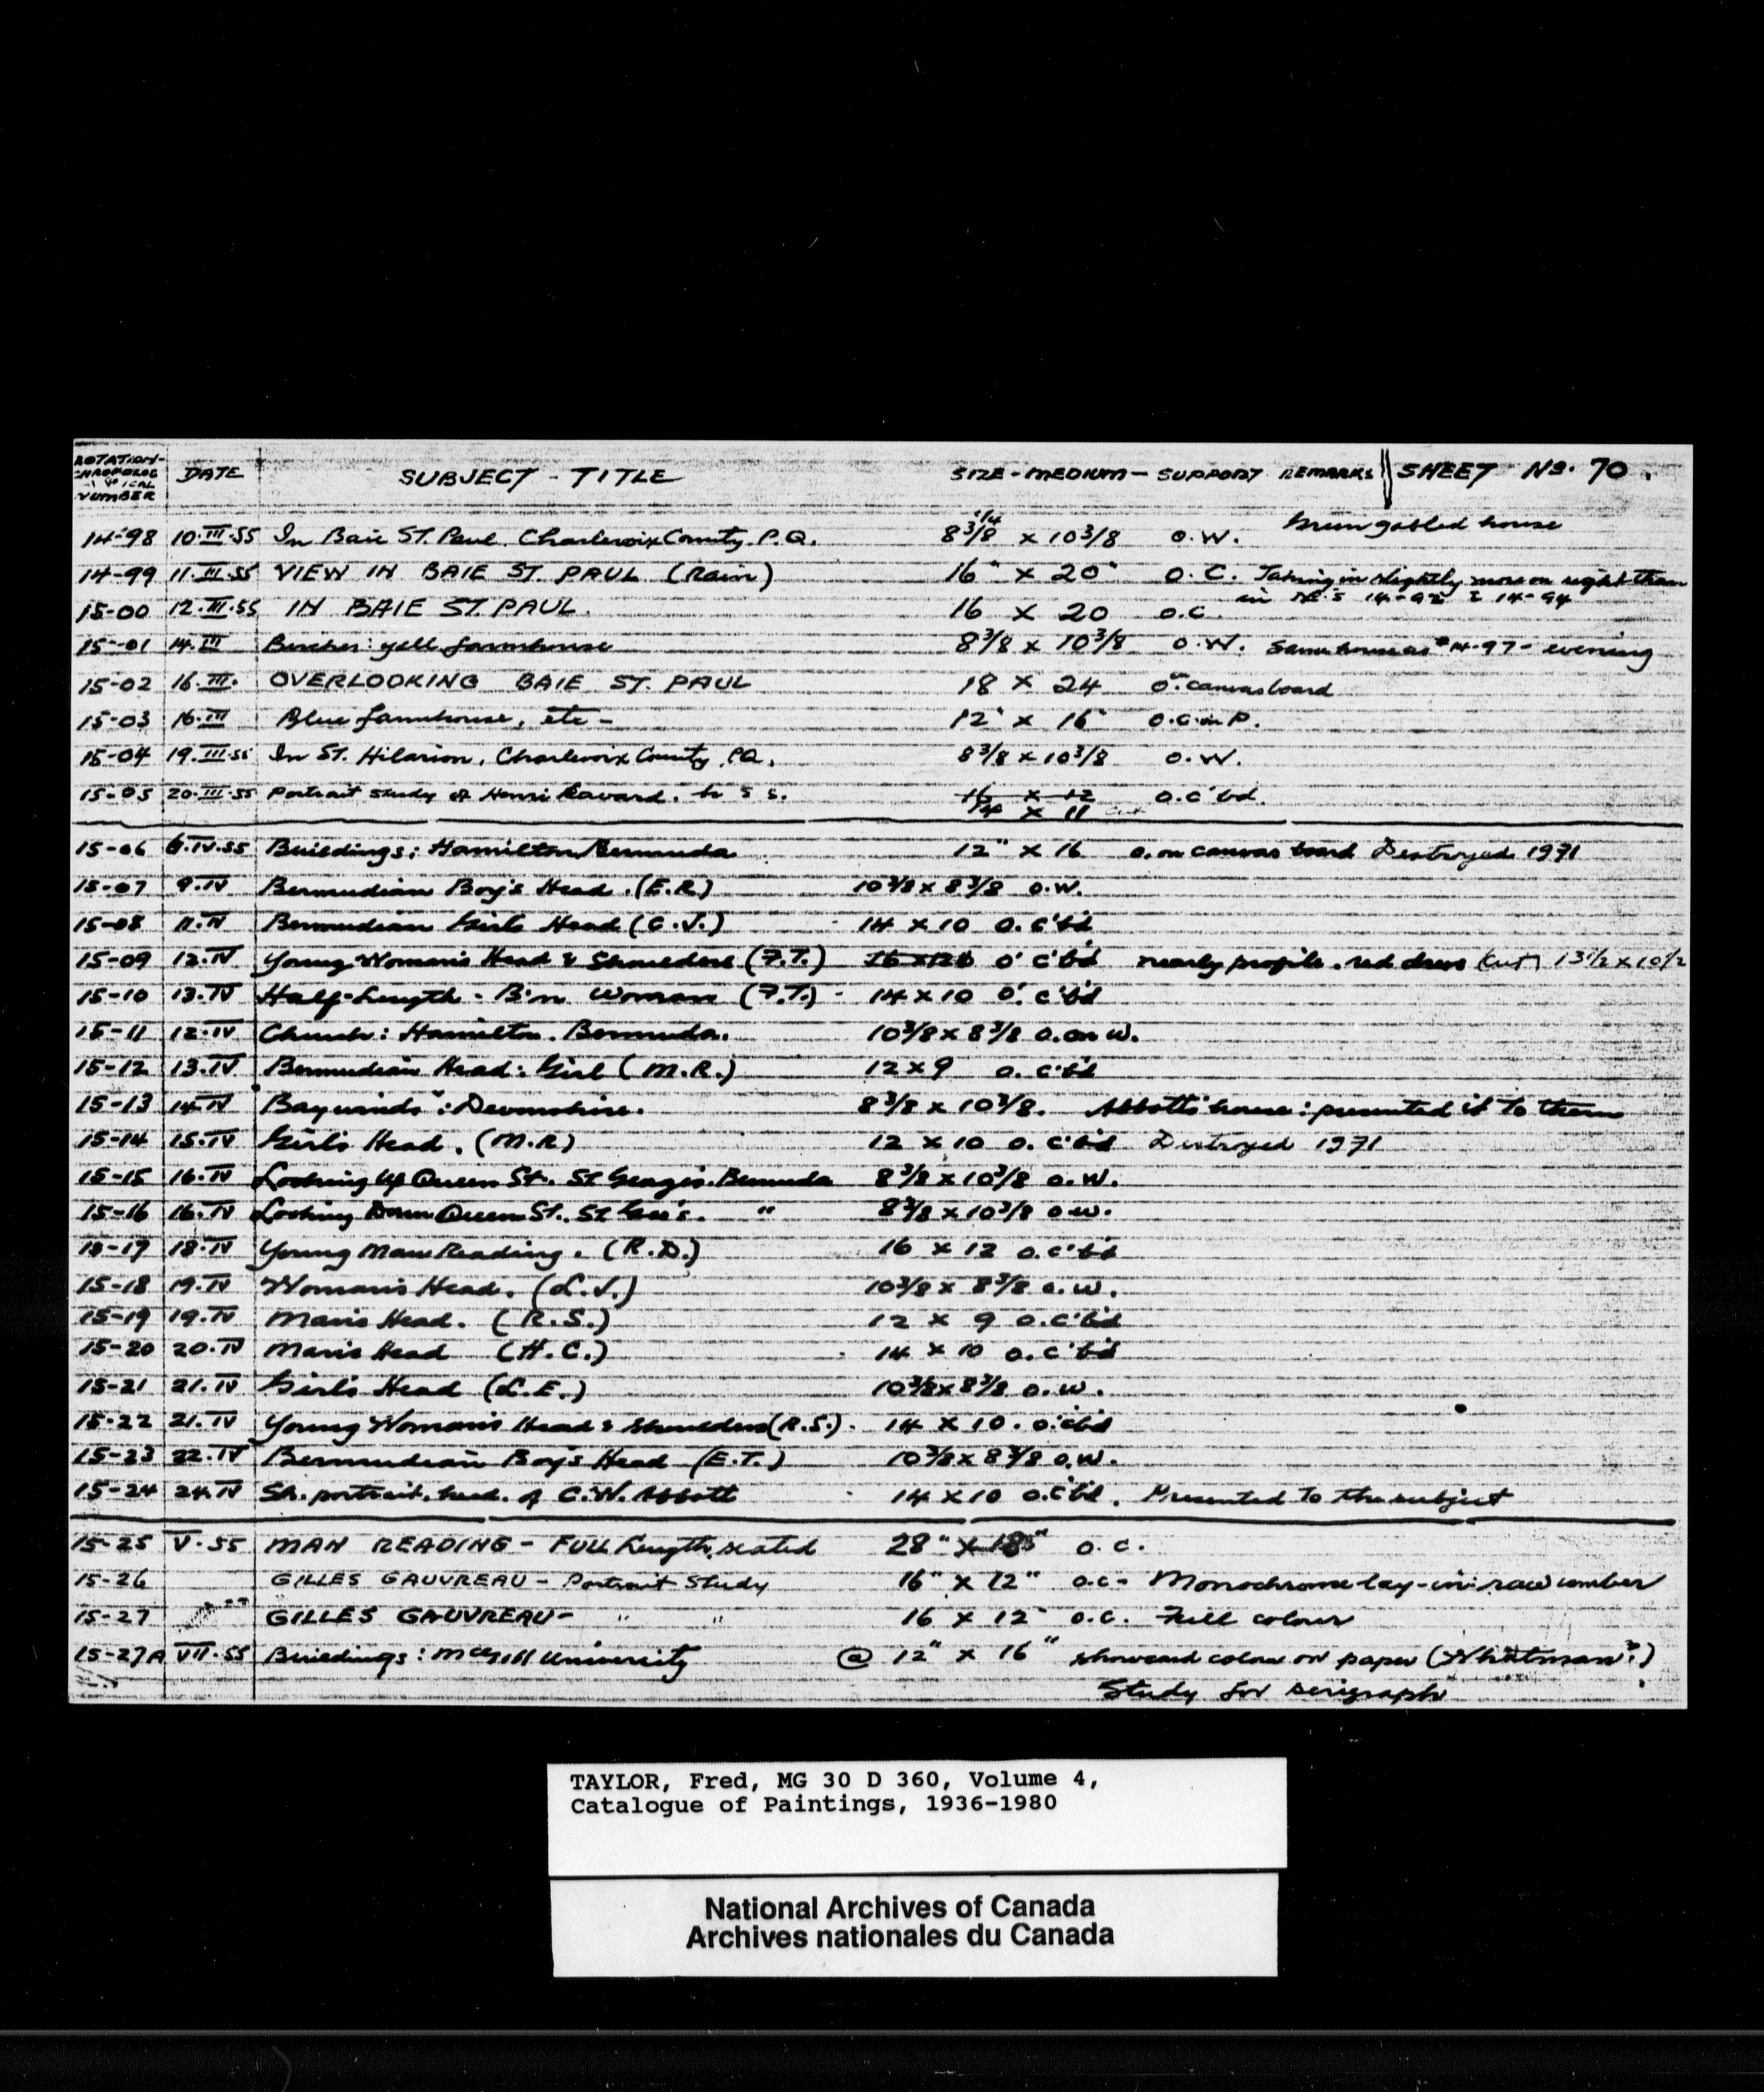 ROTATION- CHRONOLOGICAL NUMBER DATE SUBJECT - TITLE SIZE - MEDIUM - SUPPORT REMARKS SHEET No. 70.
14-98 10.III.55 In Baie ST. Paul. Charlevoix County. P.Q. 8 3/8 x 10 3/8 O.W. gabled house
1/4
14-99 11.III.55 VIEW IN BAIE ST. PAUL (Rain) 16" x 20" O.C. Taking in slightly more on right than
in No.s 14-92 & 14-94
15-00 12.III.55 IN BAIE ST. PAUL. 16 x 20 O.C.
15-01 14.III Birches: yell farmhouse 8 3/8 x 10 3/8 O.W. Same house as #14-97 - evening
15-02 16.III. OVERLOOKING BAIE ST. PAUL 18 x 24 O. on canvasboard
15-03 16.III Blue farmhouse, etc - 12" x 16" O.C. on P.
15-04 19.III.55 In ST. Hilarion, Charlevoix County, P.Q. 8 3/8 x 10 3/8 O.W.
15-05 20.III.55 Portrait study of Henri 16 x 12 O.C'bd.
14 x 11 cut
15-06 6.IV.55 Buildings: Hamilton Bermuda 12" x 16 O. on canvas board Destroyed 1971
15-07 9.IV Bermudian Boy's Head. (E.R.) 10 3/8 x 8 3/8 O.W.
15-08 11.IV Bermudian Girls Head (C.J.) 14 x 10 O.C'b'd
15-09 12.IV Young Woman's Head & Shoulders (F.T.) 16 x 12 O' C'b'd nearly profile. red dress (cut) 13 1/2 x 10 1/2
15-10 13.IV Half-Length - B'm Woman (F.T.) - 14 x 10 O. C'b'd
15-11 12.IV Church: Hamilton. Bermuda. 10 3/8 x 8 3/8 O. on W.
15-12 13.IV Bermudian Head: Girl (M.R.) 12 x 9 O. C'b'd
15-13 14.IV "Baywinds": Devonshire. 8 3/8 x 10 3/8. Abbott's house: presented it to them
15-14 15.IV Girl's Head. (M.R) 12 x 10 O. C'b'd Destroyed 1971
15-15 16.IV Looking Up Queen St. St George's. Bermuda 8 3/8 x 10 3/8 O.W.
15-16 16.IV Looking Down Queen St. St Geo's. " 8 3/8 x 10 3/8 O.W.
15-17 18.IV Young Man Reading. (R.D.) 16 x 12 O.C'b'd
15-18 19.IV Woman's Head. (L.J.) 10 3/8 x 8 3/8 O.W.
15-19 19.IV Man's Head. (R.S.) 12 x 9 O.C'b'd
15-20 20.IV Man's Head (H.C.) 14 x 10 O.C'b'd
15-21 21.IV Girl's Head (L.E.) 10 3/8 x 8 3/8 O.W.
15-22 21.IV Young Woman's Head & Shoulders (R.S.). 14 x 10. O.C'b'd
15-23 22.IV Bermudian Boy's Head (E.T.) 10 3/8 x 8 3/8 O.W.
15-24 24.IV Sk. portrait. head. of C.W. Abbott 14 x 10 O.C'b'd. Presented To the subject
15-25 V.55 MAN READING - FULL Length, seated 28" x 18" O.C.
15-26 GILLES GAUVREAU - Portrait Study 16" x 12" O.C- Monochrome lay-in: raw umber
15-27 GILLES GAUVREAU - " " 16 x 12" O.C. Full colour
15-27A VII.55 Buildings: McGill University @ 12" x 16" showcard colour on paper (Whatman?)
Study for serigraph
TAYLOR, Fred, MG 30 D 360, Volume 4,
Catalogue of Paintings, 1936-1980
National Archives of Canada
Archives nationales du Canada